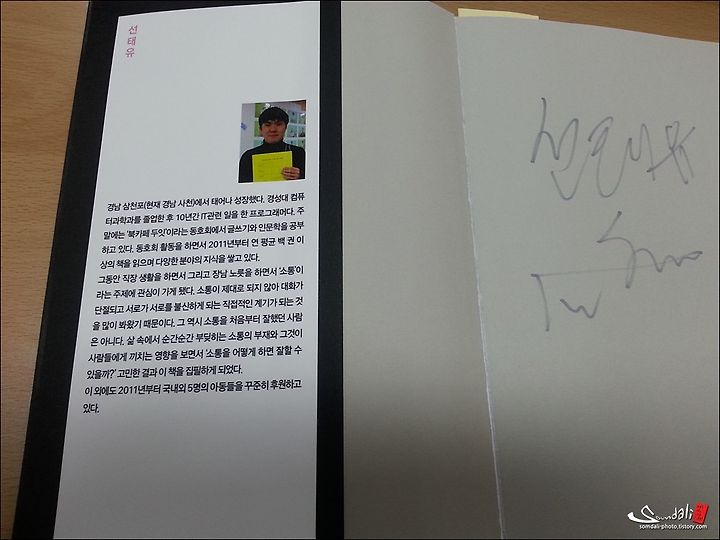 선태유
경남 삼천포(현재 경남 사천)에서 태어나 성장했다. 경성대 컴퓨
터과학과를 졸업한 후 10년간 IT관련 일을 한 프로그래머다. 주
말에는 '북카페 두잇'이라는 동호회에서 글쓰기와 인문학을 공부
하고 있다. 동호회 활동을 하면서 2011년부터 연 평균 백 권 이
상의 책을 읽으며 다양한 분야의 지식을 쌓고 있다.
그동안 직장 생활을 하면서 그리고 장남 노릇을 하면서 '소통'이
라는 주제에 관심이 가게 됐다. 소통이 제대로 되지 않아 대화가
단절되고 서로가 서로를 불신하게 되는 직접적인 계기가 되는 것
을 많이 봐왔기 때문이다. 그 역시 소통을 처음부터 잘했던 사람
은 아니다. 삶 속에서 순간순간 부딪히는 소통의 부재와 그것이
사람들에게 끼치는 영향을 보면서 '소통을 어떻게 하면 잘할 수
있을까?' 고민한 결과 이 책을 집필하게 되었다.
이 외에도 2011년부터 국내외 5명의 아동들을 꾸준히 후원하고
있다.
Somdali
somdali-photo.tistory.com